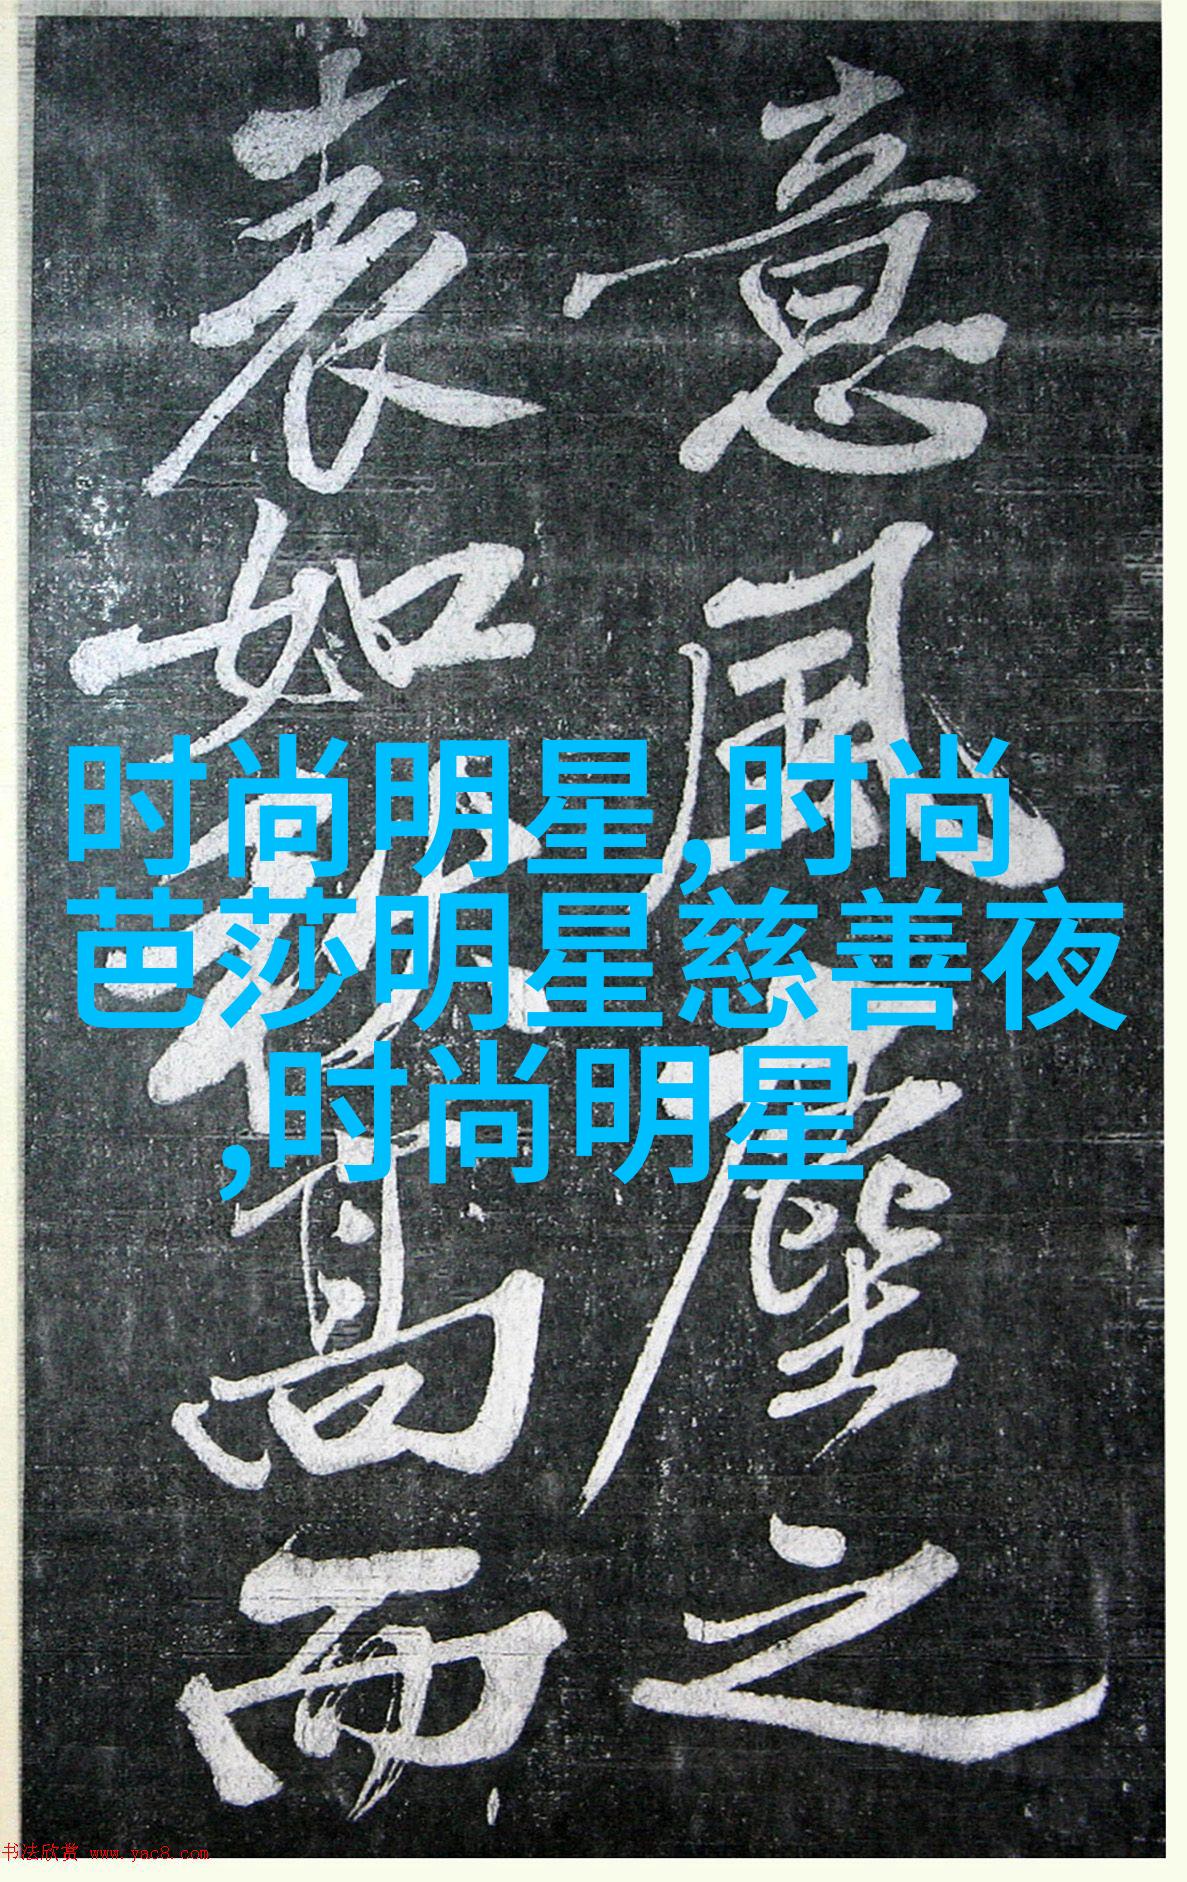 意風塵之
表如秋高而
时尚明星,时尚
芭莎明星慈善夜
,时尚明星
书法欣赏 www.yac8.com